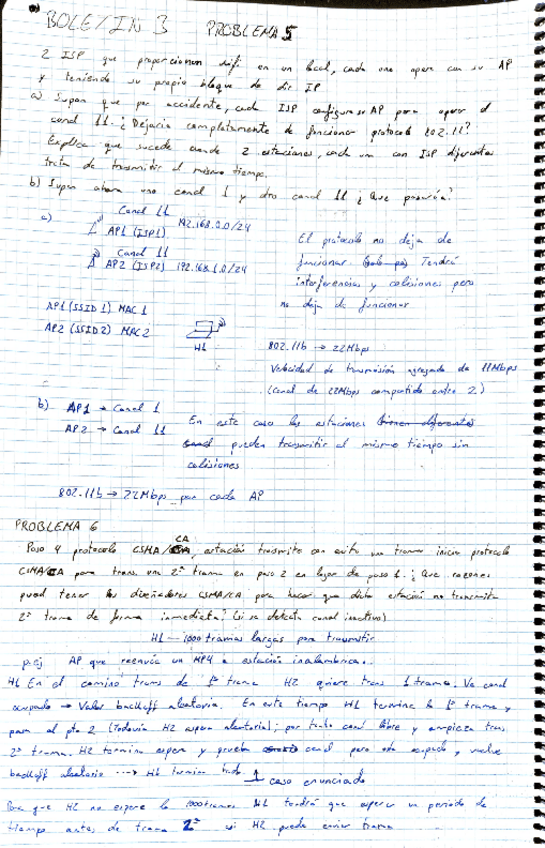 BOLETIN 3 PROBLEMA 5
2 ISP que proporcionan wifi en un local, cada uno opera con su AP
y teniendo su propio bloque de dir IP
a) Supon que por accidente, cada ISP configura su AP para operar el
canal 11. ¿Dejaría completamente de funcionar protocolo 802.11?
Explica que sucede cuando 2 estaciones, cada una con ISP diferentes
trata de transmitir al mismo tiempo.
b) Supon ahora uno canal 1 y otro canal 11 ¿Que pasaría?
a) Canal 11
AP1 (ISP1) 192.168.0.0/24
Canal 11
AP2 (ISP2) 192.168.1.0/24
El protocolo no deja de
funcionar. Tendrá
interferencias y colisiones pero
no deja de funcionar
AP1 (SSID 1) MAC 1
AP2 (SSID 2) MAC 2
H1
802.11b → 22Mbps
Velocidad de transmisión agregada de 11Mbps
(Canal de 22Mbps compartido entre 2)
b) AP1 → Canal 1
AP2 → Canal 11
En este caso las estaciones tienen diferentes
canal pueden transmitir al mismo tiempo sin
colisiones
802.11b → 22Mbps para cada AP
PROBLEMA 6
CA
Paso 4 protocolo CSMA/CA, estación transmite con exito una trama inicia protocolo
CSMA/CA para trans. una 2ª trama en paso 2 en lugar de paso 1. ¿Que razones
pued tener los diseñadores CSMA/CA para hacer que dicha estación no transmita
2ª trama de forma inmediata? (si se detecta canal inactivo)
H1 — 1000 tramas largas para transmitir
p.ej AP que reenvía un MP4 a estación inalambrica..
H1 En el camino trans de 1ª trama H2 quiere trans 1 trama. Ve canal
ocupado → Valor backoff aleatorio. En este tiempo H1 termina la 1ª trama y
pasa al pto 2 (Todavía H2 espera aleatoria); por tanto canal libre y empieza trans
2ª trama. H2 termina espera y prueba canal pero esta ocupado, vuelve
backoff aleatorio ---→ H1 termina todo 1 caso enunciado
Para que H2 no espere la 1000 tramas H1 tendrá que esperar un periodo de
tiempo antes de trama 2ª si H2 puede enviar trama